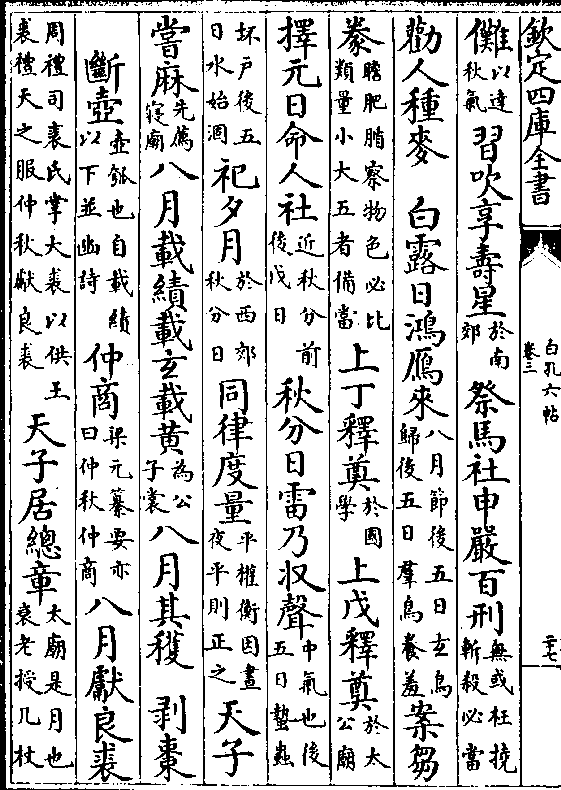 欽定四庫全書
白孔六帖
卷三
二十七
儺以達秋氣習吹享壽星於南郊祭馬社申嚴百刑無或枉撓斬殺必當
勸人種麥　白露日鴻雁來八月節後五日玄鳥歸後五日羣鳥養羞案芻
豢瞻肥腯察物色必比類量小大五者備當上丁釋奠於國學上戊釋奠於太公廟
擇元日命人社近秋分前後戊日秋分日雷乃收聲中氣也後五日蟄蟲
坏戶後五日水始涸祀夕月於西郊秋分日同律度量平權衡因晝夜平則正之天子
嘗麻先薦寢廟八月載績載玄載黃為公子裳八月其穫　剥棗
斷壺壺瓠也自載績以下並豳詩仲商梁元纂要亦曰仲秋仲商八月獻良裘
周禮司裘氏掌大裘以供王裘禮天之服仲秋獻良裘天子居總章太廟是月也衰老授几杖